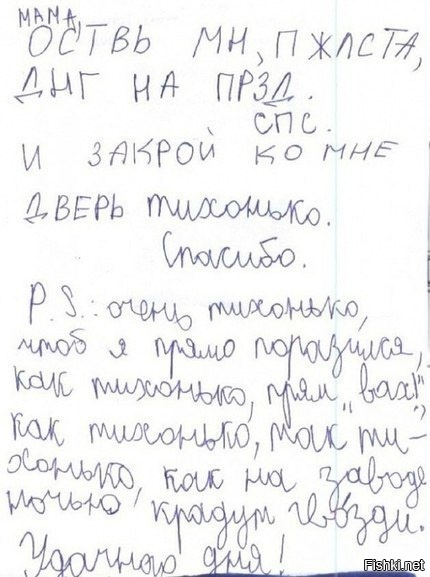 МАМА,
ОСТВЬ МН, ПЖЛСТА,
ДНГ НА ПРЗД.
СПС.
И ЗАКРОЙ КО МНЕ
ДВЕРЬ тихонько.
Спасибо.
P.S.: очень тихонько,
чтоб я прямо поразился,
как тихонько, прям "вах!",
как тихонько, так ти-
хонько, как на заводе
ночью крадут гвозди.
Удачного дня!
Fishki.net